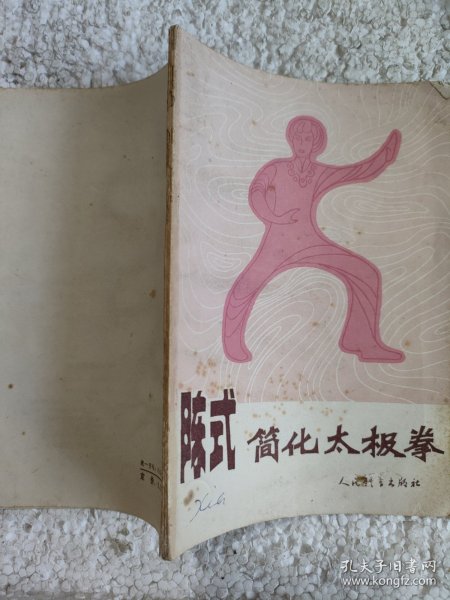 陈式 简化太极拳
人民体育出版社
Xia
孔夫子旧书网
www.kongfz.com